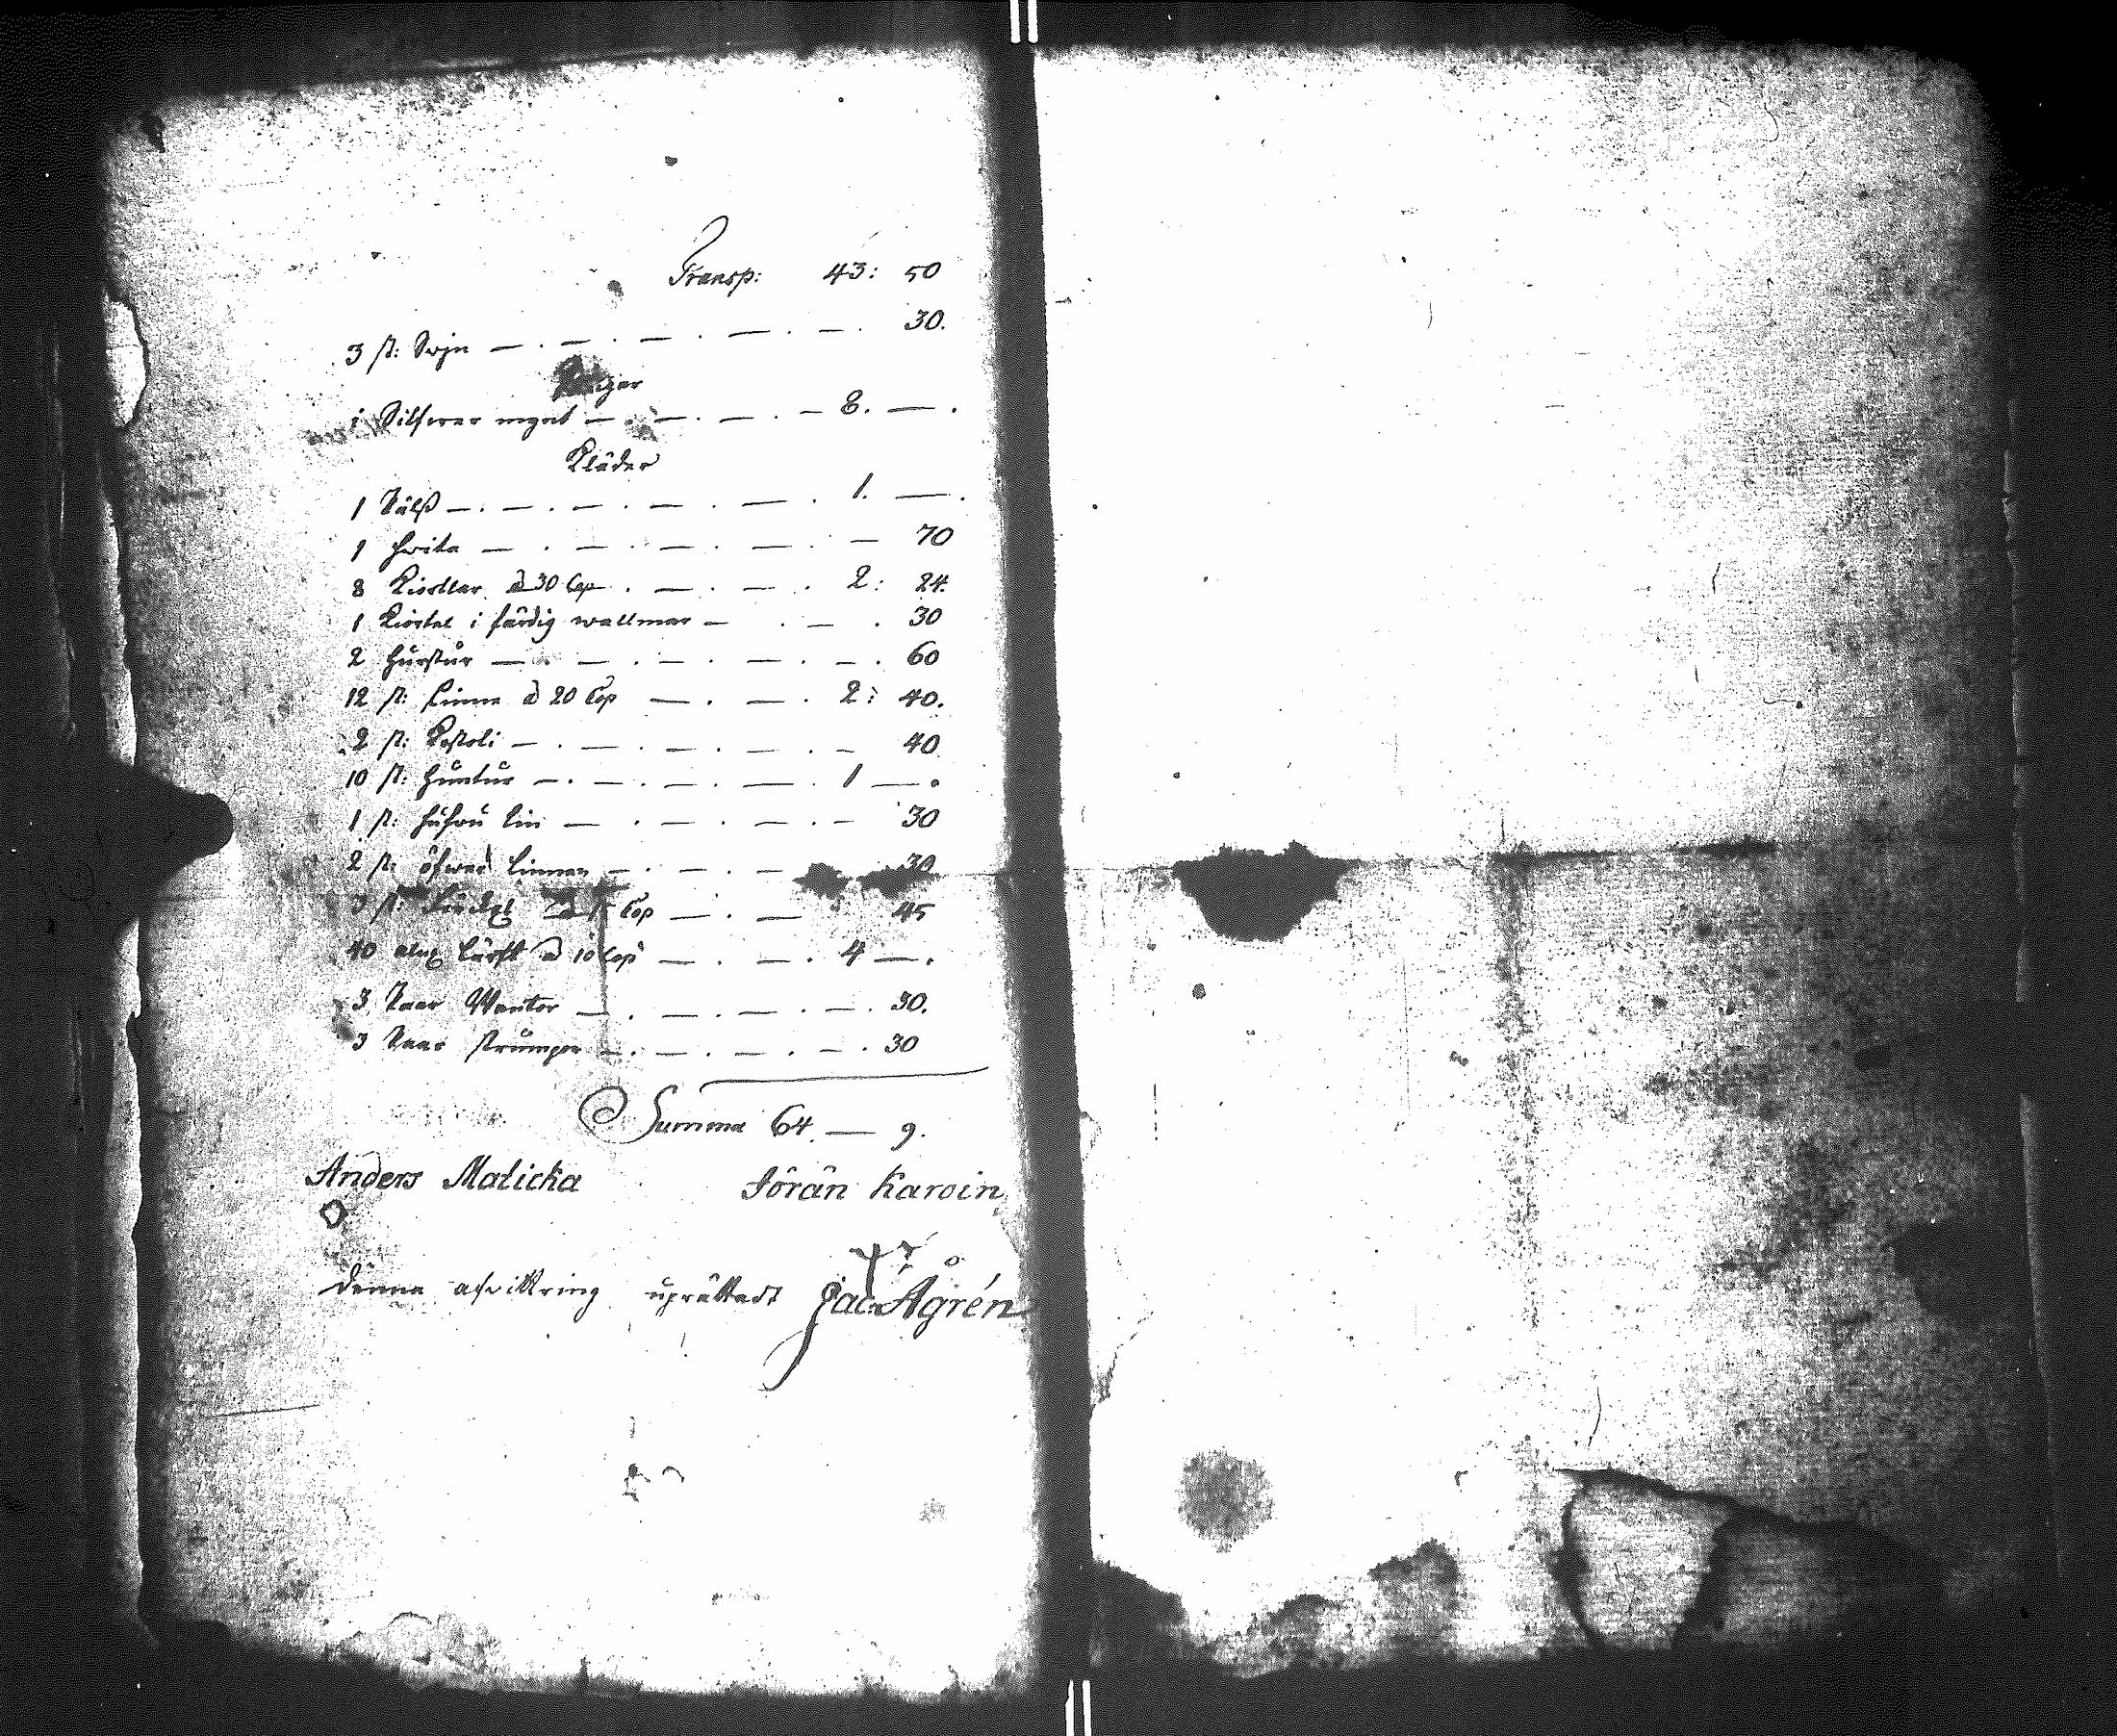 Transp: 43: 50
3 st: Swjn — . — . — . — . — . 30.
Penger
i Silfwer mynt — . — . — . — 8. — .
Kläder
1 Pälß — . — . — . — . — . 1. — .
1 hwita — . — . — . — . — 70
8 Kiortlar a 30 Cop . — . — . 2: 24.
1 Kiortel i färdig wallmar — . — . 30
2 Hurstur — . — . — . — . — . 60
12 st: Linne a 20 Cop — . — . 2: 40.
2 st: — . — . — . — . — 40
10 st: Huntur — . — . — . — . 1 — .
1 st: Hufwu Lin — . — . — . — 30
2 st: öfwer Linnen — . — . — 30
3 st: a 15 Cop — . — 45
40 aln: Lärft a 10 Cop — . — . 4 — .
3 Paar Wantor — . — . — . — . 30.
3 Paar strumpor — . — . — . — . 30
Summa 64. — 9.
Anders Malicka Jöran Karoin
Denna afwittring uprättadt Jac: Ågrén